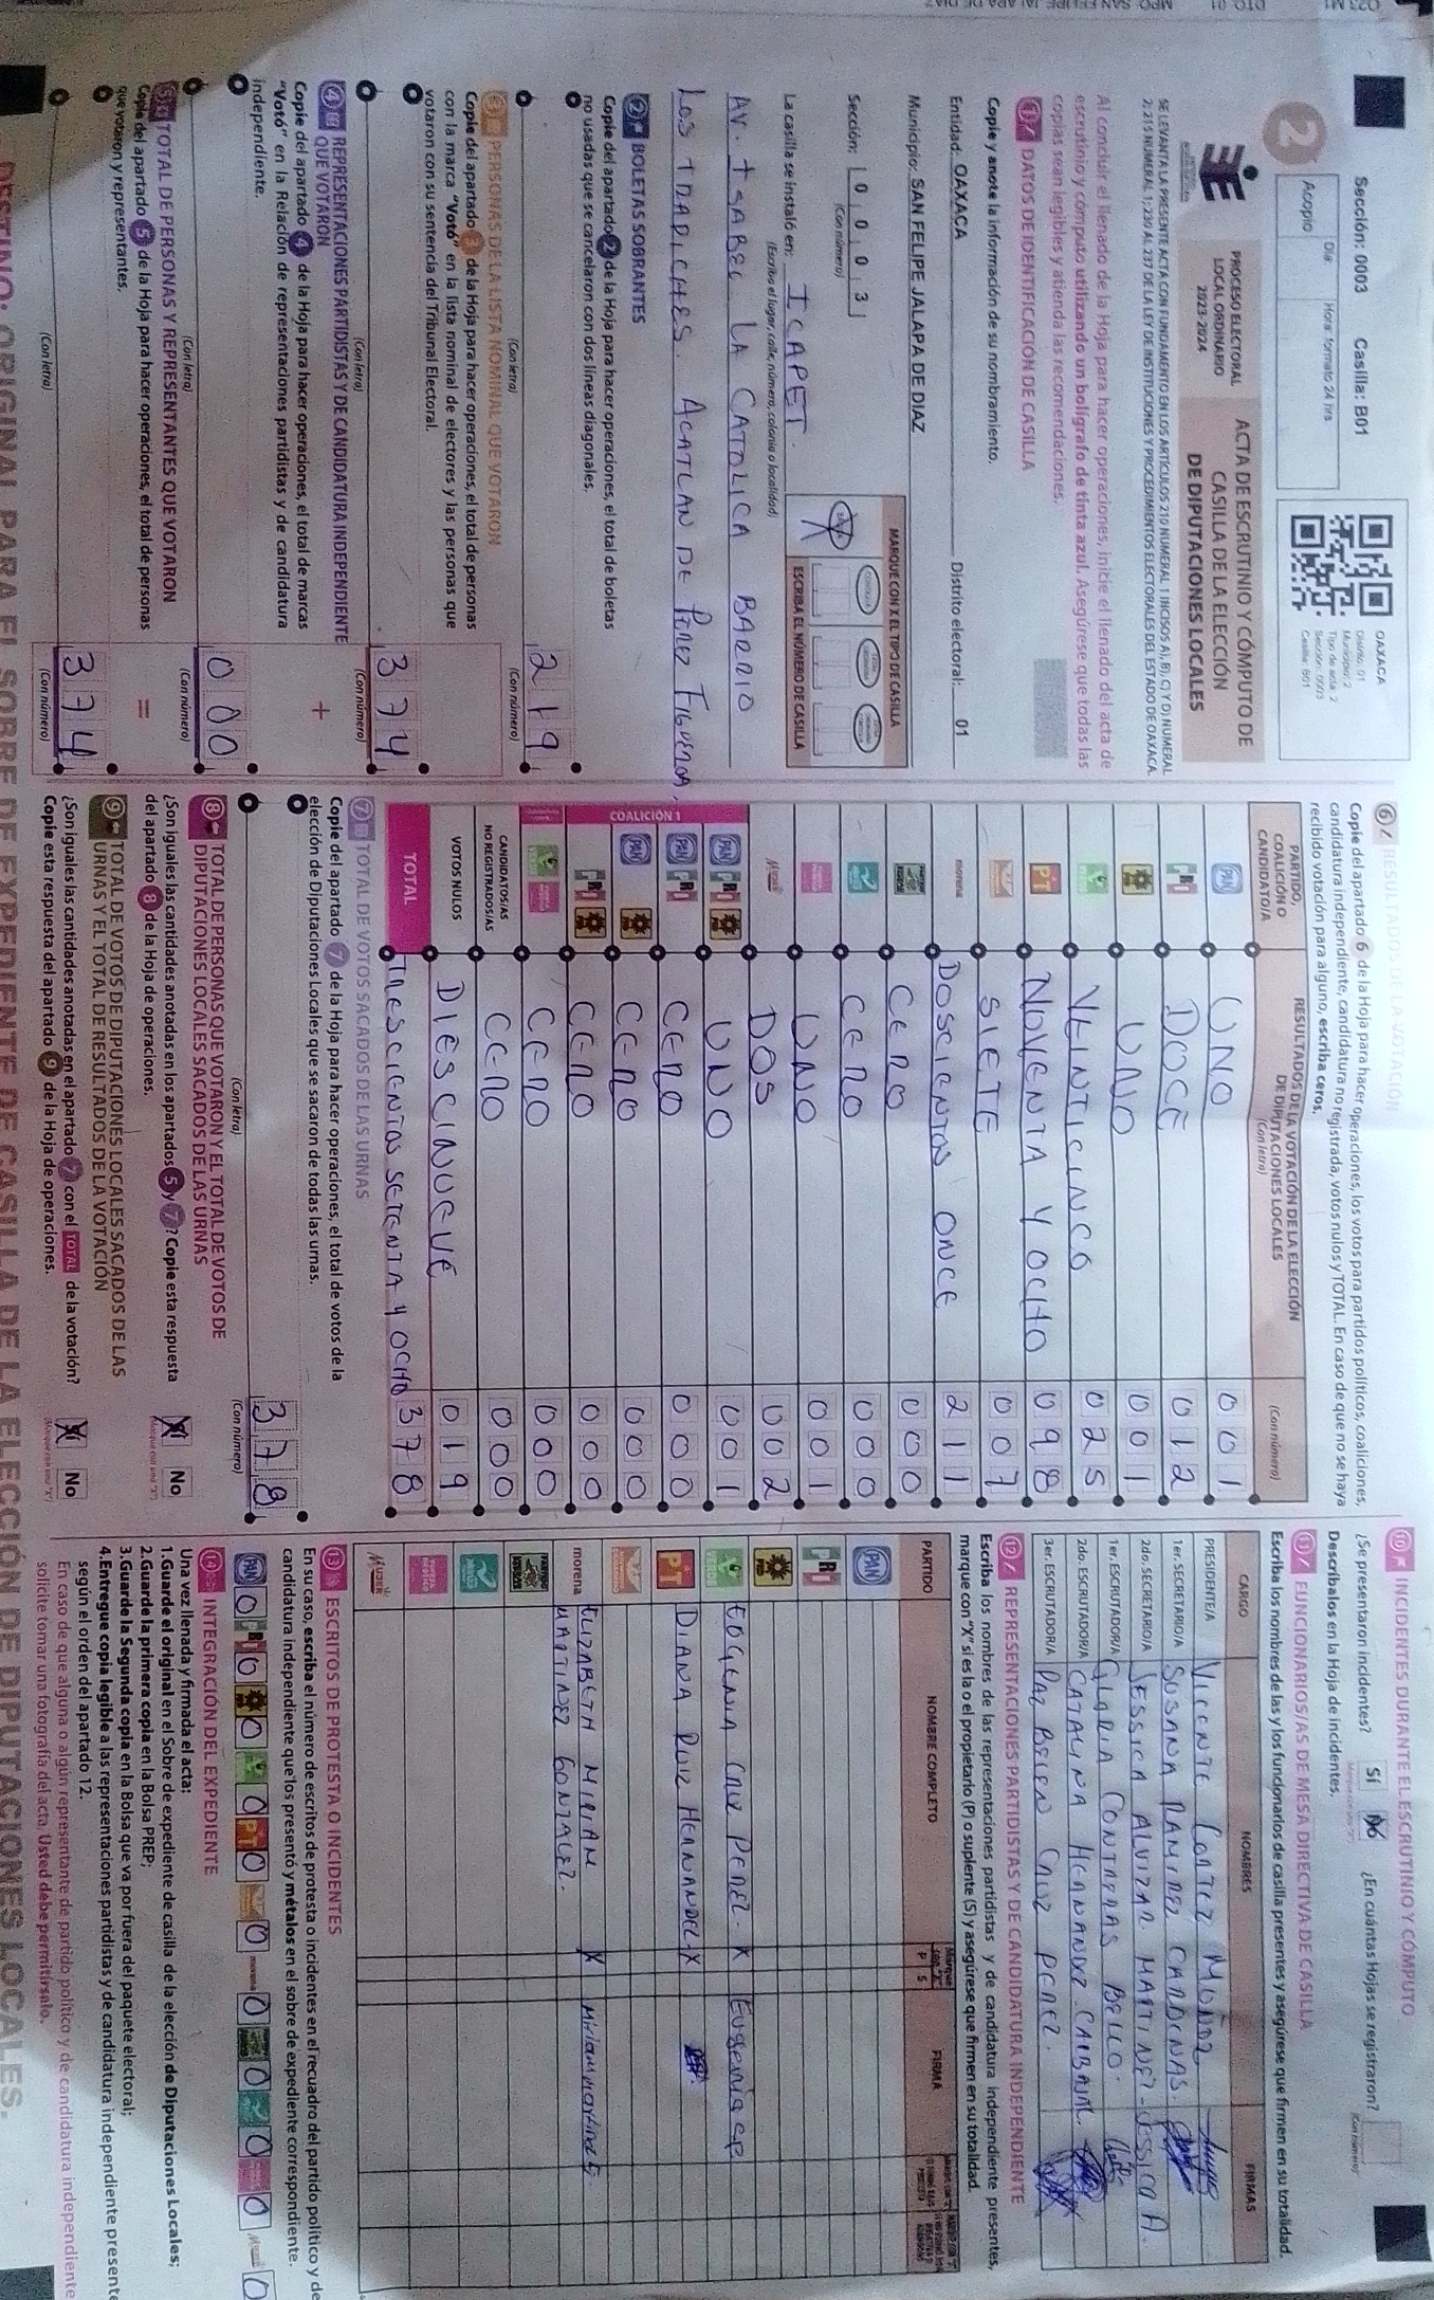 Sección: 0003 Casilla: B01
2
Acopio
Día:
Hora: formato 24 hrs
OAXACA
Distrito: 01
Municipio: 2
Tipo de acta: 2
Sección: 0003
Casilla: B01
PROCESO ELECTORAL
LOCAL ORDINARIO
2023-2024
ACTA DE ESCRUTINIO Y CÓMPUTO DE
CASILLA DE LA ELECCIÓN
DE DIPUTACIONES LOCALES
SE LEVANTA LA PRESENTE ACTA CON FUNDAMENTO EN LOS ARTÍCULOS 210 NUMERAL 1 INCISOS A), B), C) Y D) NUMERAL
2; 215 NUMERAL 1; 230 AL 237 DE LA LEY DE INSTITUCIONES Y PROCEDIMIENTOS ELECTORALES DEL ESTADO DE OAXACA.
Al concluir el llenado de la Hoja para hacer operaciones, inicie el llenado del acta de
escrutinio y cómputo utilizando un bolígrafo de tinta azul. Asegúrese que todas las
copias sean legibles y atienda las recomendaciones.
1 DATOS DE IDENTIFICACIÓN DE CASILLA
Copie y anote la información de su nombramiento.
Entidad: OAXACA Distrito electoral: 01
Municipio: SAN FELIPE JALAPA DE DIAZ
Sección: 0 0 0 3
(Con número)
MARQUE CON X EL TIPO DE CASILLA
X
ESCRIBA EL NÚMERO DE CASILLA
La casilla se instaló en: ICAPET.
(Escriba el lugar, calle, número, colonia o localidad)
AV. ISABEL LA CATOLICA BARRIO
LOS TRAPICHES. ACATLAN DE PEREZ FIGUEROA,
2 BOLETAS SOBRANTES
Copie del apartado 2 de la Hoja para hacer operaciones, el total de boletas
no usadas que se cancelaron con dos líneas diagonales.
219
(Con letra) (Con número)
3 PERSONAS DE LA LISTA NOMINAL QUE VOTARON
Copie del apartado 3 de la Hoja para hacer operaciones, el total de personas
con la marca "Votó" en la lista nominal de electores y las personas que
votaron con su sentencia del Tribunal Electoral.
374
(Con letra) (Con número)
4 REPRESENTACIONES PARTIDISTAS Y DE CANDIDATURA INDEPENDIENTE
QUE VOTARON
+
Copie del apartado 4 de la Hoja para hacer operaciones, el total de marcas
"Votó" en la Relación de representaciones partidistas y de candidatura
independiente.
000
(Con letra) (Con número)
5 TOTAL DE PERSONAS Y REPRESENTANTES QUE VOTARON
=
Copie del apartado 5 de la Hoja para hacer operaciones, el total de personas
que votaron y representantes.
374
(Con letra) (Con número)
6 RESULTADOS DE LA VOTACIÓN
Copie del apartado 6 de la Hoja para hacer operaciones, los votos para partidos políticos, coaliciones,
candidatura independiente, candidatura no registrada, votos nulos y TOTAL. En caso de que no se haya
recibido votación para alguno, escriba ceros.
PARTIDO,
COALICIÓN O
CANDIDATO/A
RESULTADOS DE LA VOTACIÓN DE LA ELECCIÓN
DE DIPUTACIONES LOCALES
(Con letra) (Con número)
PAN UNO 001
PRI DOCE 012
PRD UNO 001
VEINTICINCO 025
PT NOVENTA Y OCHO 098
SIETE 007
morena DOSCIENTOS ONCE 211
CERO 000
CERO 000
UNO 001
Mujer DOS 002
COALICIÓN 1
PAN PRI PRD UNO 001
PAN PRI CERO 000
PAN PRD CERO 000
PRI PRD CERO 000
CERO 000
CANDIDATOS/AS
NO REGISTRADOS/AS CERO 000
VOTOS NULOS DIESCINUEVE 019
TOTAL TRESCIENTOS SETENTA Y OCHO 378
7 TOTAL DE VOTOS SACADOS DE LAS URNAS
Copie del apartado 7 de la Hoja para hacer operaciones, el total de votos de la
elección de Diputaciones Locales que se sacaron de todas las urnas.
378
(Con letra) (Con número)
8 TOTAL DE PERSONAS QUE VOTARON Y EL TOTAL DE VOTOS DE
DIPUTACIONES LOCALES SACADOS DE LAS URNAS
¿Son iguales las cantidades anotadas en los apartados 5 y 7? Copie esta respuesta
del apartado 8 de la Hoja de operaciones.
Sí X No
9 TOTAL DE VOTOS DE DIPUTACIONES LOCALES SACADOS DE LAS
URNAS Y EL TOTAL DE RESULTADOS DE LA VOTACIÓN
¿Son iguales las cantidades anotadas en el apartado 7 con el TOTAL de la votación?
Copie esta respuesta del apartado 9 de la Hoja de operaciones.
Sí X No
10 INCIDENTES DURANTE EL ESCRUTINIO Y CÓMPUTO
¿Se presentaron incidentes? Sí No X ¿En cuántas Hojas se registraron?
Descríbalos en la Hoja de incidentes.
11 FUNCIONARIOS/AS DE MESA DIRECTIVA DE CASILLA
Escriba los nombres de las y los funcionarios de casilla presentes y asegúrese que firmen en su totalidad.
CARGO NOMBRES FIRMAS
PRESIDENTE/A VICENTE CORTEZ MUÑOZ
1er. SECRETARIO/A SUSANA RAMIREZ CARDENAS.
2do. SECRETARIO/A JESSICA ALVIZAR MARTINEZ - JESSICA A.
1er. ESCRUTADOR/A GLORIA CONTRERAS BELLO.
2do. ESCRUTADOR/A CATALINA HERNANDEZ CARBAJAL.
3er. ESCRUTADOR/A PAZ BELEN CRUZ PEREZ.
12 REPRESENTACIONES PARTIDISTAS Y DE CANDIDATURA INDEPENDIENTE
Escriba los nombres de las representaciones partidistas y de candidatura independiente presentes,
marque con "X" si es la o el propietario (P) o suplente (S) y asegúrese que firmen en su totalidad.
PARTIDO NOMBRE COMPLETO P S FIRMA
PAN
PRI
PRD
VERDE EUGENIA CRUZ PEREZ. X Eugenia cp
PT DIANA RUIZ HERNANDEZ X
morena ELIZABETH MIRIAM MARTINEZ GONZALEZ. X Miriam martinez G.
Mujer
13 ESCRITOS DE PROTESTA O INCIDENTES
En su caso, escriba el número de escritos de protesta o incidentes en el recuadro del partido político y de
candidatura independiente que los presentó y métalos en el sobre de expediente correspondiente.
PAN 0 PRI 0 PRD 0 0 PT 0 0 morena 0 0 0 0 Mujer 0
14 INTEGRACIÓN DEL EXPEDIENTE
Una vez llenada y firmada el acta:
1.Guarde el original en el Sobre de expediente de casilla de la elección de Diputaciones Locales;
2.Guarde la primera copia en la Bolsa PREP;
3.Guarde la Segunda copia en la Bolsa que va por fuera del paquete electoral;
4.Entregue copia legible a las representaciones partidistas y de candidatura independiente presentes
según el orden del apartado 12.
En caso de que alguna o algún representante de partido político y de candidatura independiente
solicite tomar una fotografía del acta. Usted debe permitírselo.
DESTINO: ORIGINAL PARA EL SOBRE DE EXPEDIENTE DE CASILLA DE LA ELECCIÓN DE DIPUTACIONES LOCALES.